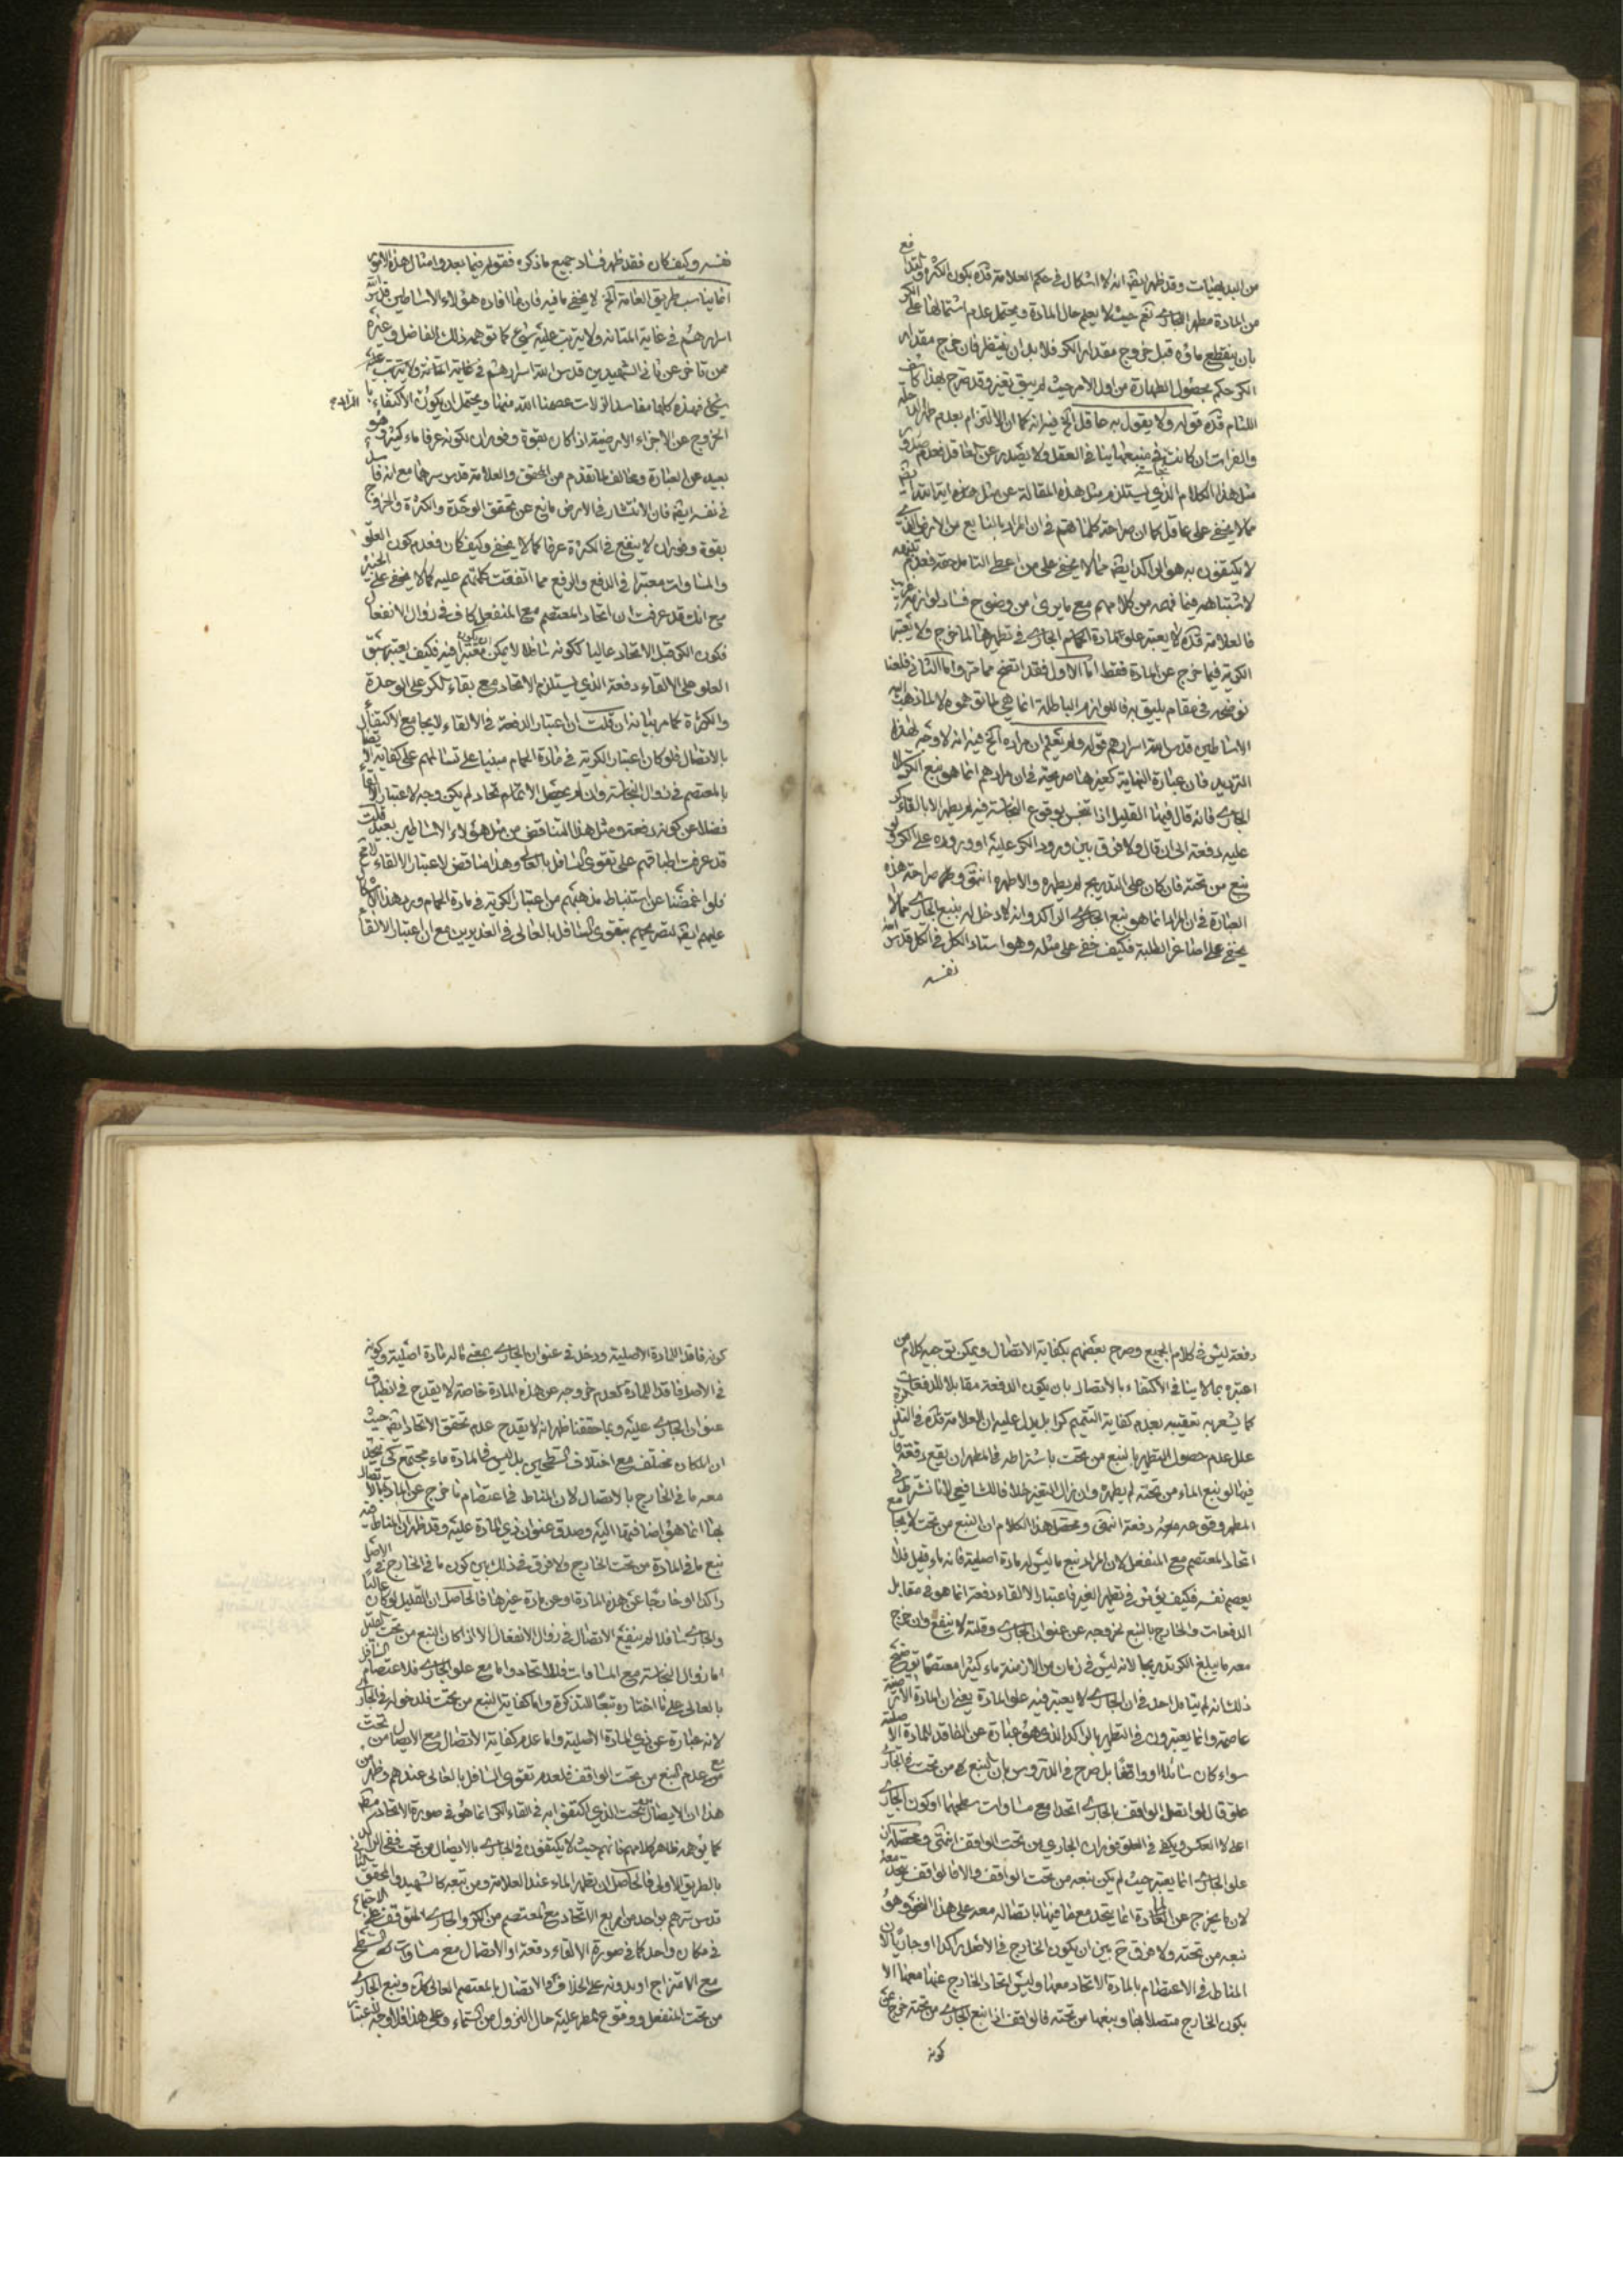 من البديهيات وقد ظهر ايضا انه لا اشكال في حكم العلامة قده بكون الكثرة والتدافع
من المادة مطهرا للجاري نعم حيث لا يعلم حال المادة ويحتمل عدم اشتمالها على الكر
بان ينقطع ماؤه قبل خروج مقدار الكر فلا بد ان ينتظر فان خرج مقدار
الكر حكم بحصول الطهارة من اول الامر حيث لم يبق تغير وقد صرح بهذا كاشف
اللثام قده قوله ولا يقول به عاقل الخ فيه انه كما ان الالتزام بعدم طهر الدجلة
والفرات ان كانت في منبعهما ينافي العقل ولا يصدر عن العاقل فعدم صدور
مثل هذا الكلام الذي يستلزم مثل هذه المقالة عن مثل هذه
مما لا يخفى على عاقل كما ان صراحة كلماتهم في ان المراد بالنابع من الارض الذي
لا يكتفون به هو الراكد ايضا مما لا يخفى على من اعطى التامل حقه فعدم
لاشتباهه فيما فهمه من كلامهم مع ما يرى من وضوح فساد لوازمه
فالعلامة قده لا يعتبر علو المادة الجاري في تطهرها لما خرج ولا يعتبر
الكرية فيما خرج عن المادة فقط اما الاول فقد اتضح مما مر واما الثاني فلعنا
نوضحه في مقام يليق به فاللوازم الباطلة انما هي لما توهموه لا لما ذهب اليه
الاساطين قدس الله اسرارهم قوله ولم يعلم ان مراده الخ فيه انه لا وجه لهذا
الترديد فان عبارة النهاية كغيرها صريحة في ان مرادهم انما هو نبع الراكد لا
الجاري فانه قال فيها القليل اذا تنجس بوقوع النجاسة فيه لم يطهر الا بالقاء كر
عليه دفعة الى ان قال ولا فرق بين ورود الكر عليه او وروده على الكر ولو
نبع من تحته فان كان على التدريج لم يطهره والا طهره انتهى وظهر صراحة هذه
العبارة في ان المراد انما هو نبع الراكد وانه لا دخل له بنبع الجاري مما لا
يخفى على اصاغر الطلبة فكيف خفى على مثله وهو استاد الكل في الكل قدس الله
نفسه
نفسه وكيف كان فقد ظهر فساد جميع ما ذكره فقوله فيما بعد وامثال هذه الامور
انما يناسب طريق العامة الخ لا يخفى ما فيه فان ما افاده هؤلاء الاساطين قدس الله
اسرارهم في غاية المتانة ولا يترتب عليه شيء كما توهمه ذلك الفاضل وغيره
ممن تاخر عن ثاني الشهيدين قدس الله اسرارهم في غاية المتانة ولا يترتب عليه
شيء فهذه كلها مفاسد الزلات عصمنا الله منها ويحتمل ان يكون الاكتفاء
الخروج عن الاجزاء الارضية اذا كان بقوة وفوران لكونه عرفا ماء كثيرا وهو
بعيد عن العبارة ومخالف لما تقدم من المحقق والعلامة قدس سرهما مع انه فاسد
في نفسه ايضا فان الانتشار في الارض مانع عن تحقق الوحدة والكثرة والخروج
بقوة وفوران لا ينفع في الكثرة عرفا كما لا يخفى وكيف كان فعدم كون العلو
والمساوات معتبرا في الدفع والرفع مما اتفقت كلماتهم عليه كما لا يخفى على الخبير
مع انك قد عرفت ان اتحاد المعتصم مع المنفعل كاف في زوال الانفعال
فكون الكر قبل الاتحاد عاليا ككونه نازلا لا يمكن ان يكون معتبرا فيه فكيف يعتبر سبق
العلو على الالقاء دفعة الذي يستلزم الاتحاد مع بقاء الكر على الوحدة
والكثرة كما مر بيانه ان قلت ان اعتبار الدفعة في الالقاء لا يجامع الاكتفاء
بالاتصال فلو كان اعتبار الكرية في مادة الحمام مبنيا على تسالمهم على كفاية الاتصال
بالمعتصم في زوال النجاسة وان لم يحصل الاتحاد لم يكن وجه لاعتبار الالقاء
فضلا عن كونه دفعة ومثل هذا التناقض من مثل هؤلاء الاساطين بعيد قلت
قد عرفت اطباقهم على تقوى السافل بالعالى وهذا مناقض لاعتبار الالقاء
فلو اغمضنا عن استنباط مذهبهم من اعتبار الكرية في مادة الحمام ورد هذا الاشكال
عليهم ايضا لتصريحهم بتقوى السافل بالعالى في الغديرين مع ان اعتبار الالقاء
دفعة ليس في كلام الجميع وصرح بعضهم بكفاية الاتصال ويمكن توجيه كلام من
اعتبره بما لا ينافي الاكتفاء بالاتصال بان يكون الدفعة مقابلا للدفعات
كما يشعر به تعقيبه بعدم كفاية التتميم كرا بل يدل عليه ان العلامة قده في التذكرة
علل عدم حصول التطهير بالنبع من تحت باشتراطه في المطهر ان يقع دفعة قال
فيها لو نبع الماء من تحته لم يطهره وان زال التغير خلافا للشافعي لانا نشترط في
المطهر وقوعه دفعة انتهى ومحصل هذا الكلام ان النبع من تحت لا يجامع
اتحاد المعتصم مع المنفعل لان المراد نبع ما ليس له مادة اصلية فانه ماء قليل فلا
يعصم نفسه فكيف يؤثر في تطهير الغير فاعتبار الالقاء دفعة انما هو في مقابل
الدفعات والخارج بالنبع لخروجه عن عنوان الجاري وقلته لا ينفع وان خرج
معه ما يبلغ الكر تدريجا لانه ليس في زمان من الازمنة ماء كثيرا معتصما توضيح
ذلك انه لم يتامل احد في ان الجاري لا يعتبر فيه علو المادة يعني ان المادة الارضية
عاصمة وانما يعتبرون في التطهير بالراكد الذي هو عبارة عن الفاقد للمادة الاصلية
سواء كان سائلا او واقفا بل صرح في الدروس بان النبع من تحت في الجاري
علو قال لو اتصل الواقف بالجاري اتحدا مع مساوات سطحهما او كون الجاري
اعلى لا العكس ويكفي في العلو فوران الجاري من تحت الواقف انتهى ومحصله ان
علو الجاري انما يعتبر حيث لم يكن نبعه من تحت الواقف والا فالواقف يتحد معه
لان ما يخرج عن المادة انما يتحد مع ما فيها باتصاله معه على هذا النحو وهو
نبعه من تحته ولا فرق ح بين ان يكون الخارج في الاصل راكدا او جاريا لان
المناط في الاعتصام بالمادة الاتحاد معها وليس اتحاد الخارج عنها معها الا
بكون الخارج متصلا بها ونبعها من تحته فالواقف اذا نبع الجاري من تحته خرج عن
كونه
كونه فاقد المادة الاصلية ودخل في عنوان الجاري بمعنى ما له مادة اصلية وكونه
في الاصل فاقد المادة كعدم خروجه عن هذه المادة خاصة لا يقدح في انطباق
عنوان الجاري عليه وبما حققنا ظهر انه لا يقدح عدم تحقق الاتحاد ايضا حيث
ان المكان مختلف مع اختلاف السطحين بل ليس في المادة ماء مجتمع كى يتحد
معه ما في الخارج بالاتصال لان المناط في اعتصام ما خرج عن المادة بالاتصال
بها انما هو اضافتها اليه وصدق عنوان ذي المادة عليه وقد ظهر ان المناط فيه
نبع ما في المادة من تحت الخارج ولا فرق في ذلك بين كون ما في الخارج في الاصل
راكدا او خارجا عن هذه المادة او عن مادة غيرها فالحاصل ان القليل لو كان عاليا
والجاري سافلا لم ينفع الاتصال في زوال الانفعال الا اذا كان النبع من تحت القليل
اما زوال النجاسة مع المساوات فللاتحاد واما مع علو الجاري فلاعتصام السافل
بالعالى على ما اختاره تبعا للتذكرة واما كفاية النبع من تحت فلدخوله في الجاري
لانه عبارة عن ذي المادة الاصلية واما عدم كفاية الاتصال مع الاتصال من تحت
مع عدم النبع من تحت الواقف فلعدم تقوى السافل بالعالى عندهم وظهر من
هذا ان الاتصال بتحت الذي اكتفوا به في القاء الكر انما هو في صورة الاتحاد
كما يوهمه ظاهر كلامهم فانهم حيث لا يكتفون في الجاري بالاتصال من تحت ففي الراكد
بالطريق الاولى فالحاصل ان تطهير الماء عند العلامة ومن تبعه كالشهيد والمحقق الثاني
قدس سرهم بواحد من اربع الاتحاد مع المعتصم من الكر والجاري المتوقف على الاجتماع
في مكان واحد كما في صورة الالقاء دفعة او الاتصال مع مساوات السطح
مع الامتزاج او بدونه على الخلاف والاتصال بالمعتصم العالى كالكر ونبع الجاري
من تحت المنفعل ووقوع المطر عليه حال النزول من السماء وعلى هذا فلا وجه لاعتبار